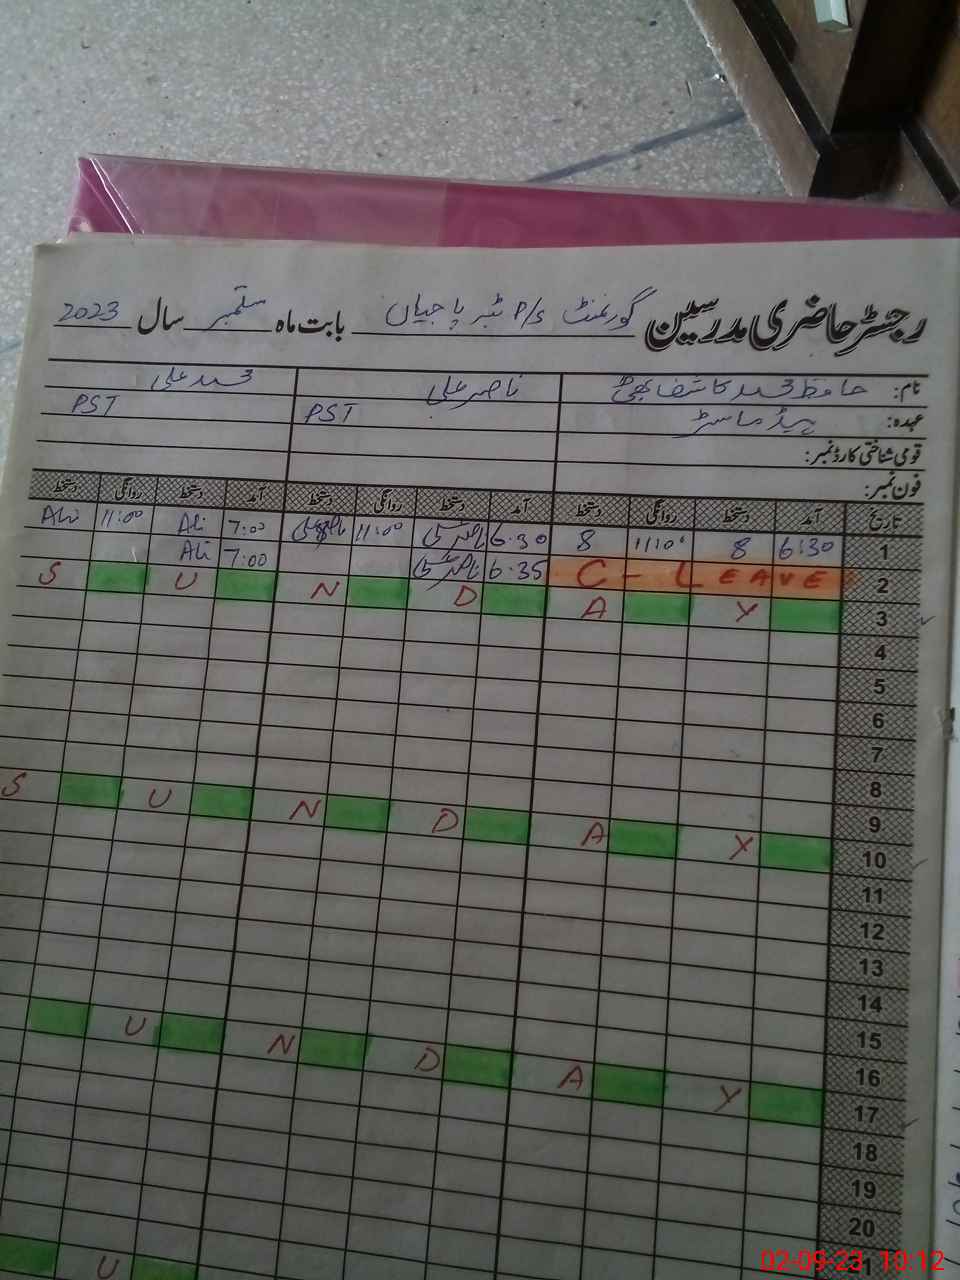 رجسٹر حاضری مدرسین گورنمنٹ P/S ٹبر پاجیاں بابت ماہ ستمبر سال 2023
نام: حافظ محمد کاشف ناصر علی محمد علی
عہدہ: ہیڈ ماسٹر PST PST
قومی شناختی کارڈ نمبر:
فون نمبر:
تاریخ آمد دستخط روانگی دستخط آمد دستخط روانگی دستخط آمد دستخط روانگی دستخط
1 6:30 8 11:00 8 6:30 11:00 7:00 Ali 11:00 Ali
2 C - LEAVE 6:35 7:00 Ali
3 S U N D A Y
4
5
6
7
8
9
10 S U N D A Y
11
12
13
14
15
16
17 U N D A Y
18
19
20
U
02-09-23 10:12